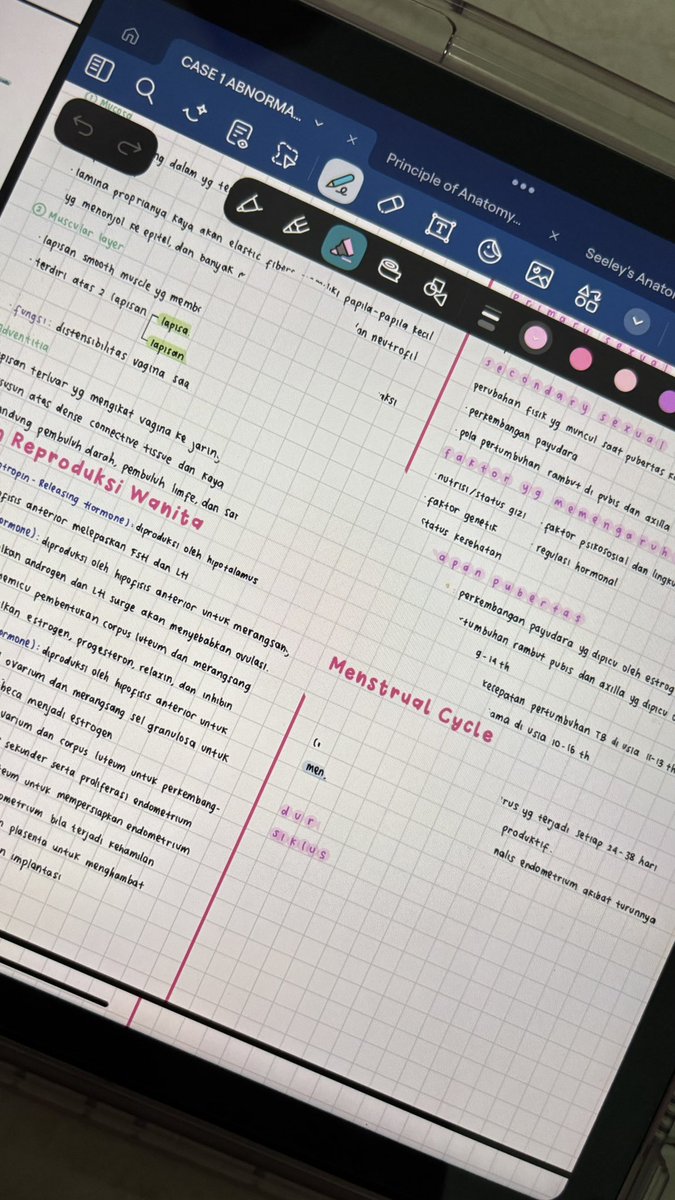 CASE 1 ABNORMA...
Principle of Anatomy...
Seeley's Anato
(1) Mucosa
ng dalam yg te
· lamina proprianya kaya akan elastic fibers
papila-papila kecil
yg menonjol ke epitel, dan banyak
an neutrofil
② Muscular layer
· lapisan smooth muscle yg membr
· terdiri atas 2 lapisan
lapisa
lapisan
aksi
· fungsi: distensibilitas vagina saa
adventitia
apisan terluar yg mengikat vagina ke jarin,
susun atas dense connective tissue dan kaya
andung pembuluh darah, pembuluh limfe, dan sar
n Reproduksi Wanita
otropin-Releasing Hormone): diproduksi oleh hipotalamus
ofisis anterior melepaskan FSH dan LH
ormone): diproduksi oleh hipofisis anterior untuk merangsang,
ilkan androgen dan LH surge akan menyebabkan ovulasi.
memicu pembentukan corpus luteum dan merangsang
ilkan estrogen, progesteron, relaxin, dan inhibin
Hormone): diproduksi oleh hipofisis anterior untuk
ovarium dan merangsang sel granulosa untuk
heca menjadi estrogen
varium dan corpus luteum untuk perkembang-
sekunder serta proliferasi endometrium
teum untuk mempersiapkan endometrium
ometrium bila terjadi kehamilan
n plasenta untuk menghambat
an implantasi
primary sexual
secondary sexual
perubahan fisik yg muncul saat pubertas k
· perkembangan payudara
· pola pertumbuhan rambut di pubis dan axilla
faktor yg memengaruh
· nutrisi/status gizi · faktor psikososial dan lingku
· faktor genetik · regulasi hormonal
status kesehatan
apan pubertas
perkembangan payudara yg dipicu oleh estrog
rtumbuhan rambut pubis dan axilla yg dipicu o
9-14 th
kecepatan pertumbuhan TB di usia 11-13 th
ama di usia 10-16 th
Menstrual Cycle
men.
rus yg terjadi setiap 24-38 hari
produktif.
dur
siklus
nalis endometrium akibat turunnya